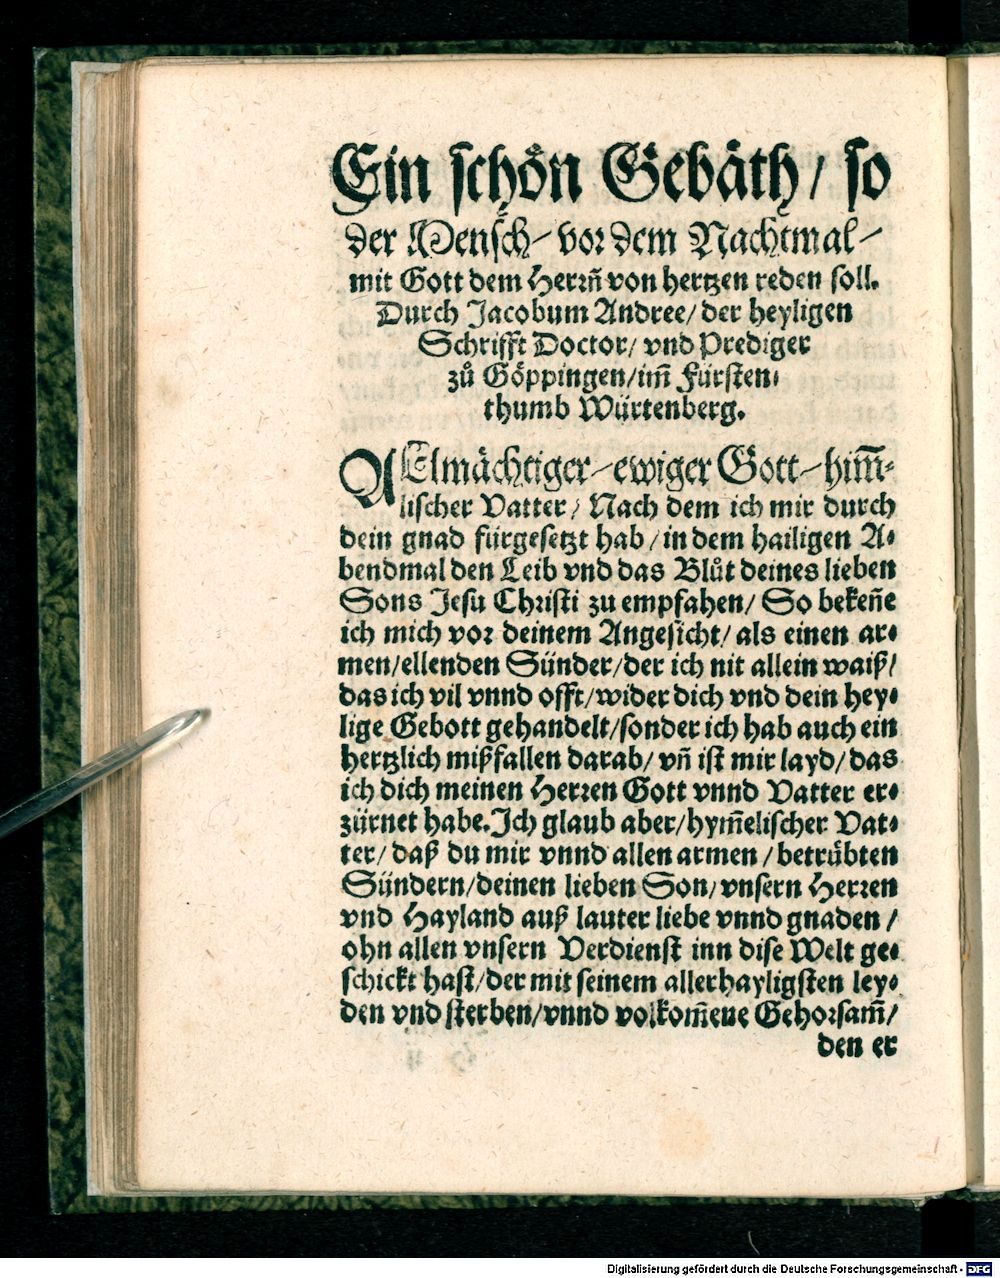 Ein schön Gebäth/ so
der Mensch/ vor dem Nachtmal/
mit Gott dem Herrn̄ von hertzen reden soll.
Durch Jacobum Andree/ der heyligen
Schrifft Doctor/ vnd Prediger
zů Göppingen/ im̄ Fürsten-
thumb Würtenberg.
ALlmächtiger/ ewiger Gott/ him̄-
lischer Vatter/ Nach dem ich mir durch
dein gnad fürgesetzt hab/ in dem hailigen A-
bendmal den Leib vnd das Blůt deines lieben
Sons Jesu Christi zu empfahen/ So beken̄e
ich mich vor deinem Angesicht/ als einen ar-
men/ ellenden Sünder/ der ich nit allein waiß/
das ich vil vnnd offt/ wider dich vnd dein hey-
lige Gebott gehandelt/ sonder ich hab auch ein
hertzlich mißfallen darab/ vn̄ ist mir layd/ das
ich dich meinen Herren Gott vnnd Vatter er-
zürnet habe. Ich glaub aber/ hym̄elischer Vat-
ter/ daß du mir vnnd allen armen/ betrübten
Sündern/ deinen lieben Son/ vnsern Herren
vnd Hayland auß lauter liebe vnnd gnaden/
ohn allen vnsern Verdienst inn dise Welt ge-
schickt hast/ der mit seinem allerhayligsten ley-
den vnd sterben/ vnnd volkom̄ene Gehorsam̄/
den er
Digitalisierung gefördert durch die Deutsche Forschungsgemeinschaft - DFG